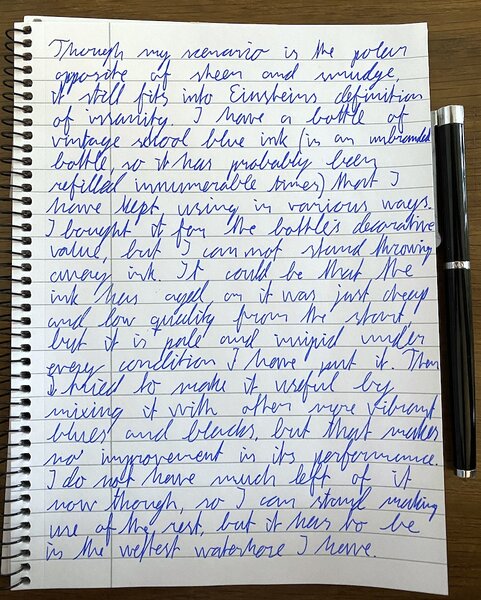 Though my scenario is the polar
opposite of sheen and smudge,
it still fits into Einsteins definition
of insanity. I have a bottle of
vintage school blue ink (in an unbranded
bottle, so it has probably been
refilled innumerable times) that I
have kept using in various ways.
I bought it for the bottle's decorative
value, but I can not stand throwing
away ink. It could be that the
ink has aged, or it was just cheap
and low quality from the start,
but it is pale and insipid under
every condition I have put it. Then
I tried to make it useful by
mixing it with other more vibrant
blues and blacks, but that makes
no improvement in its performance.
I do not have much left of it
now though, so I can stand making
use of the rest, but it has to be
in the wettest I have.